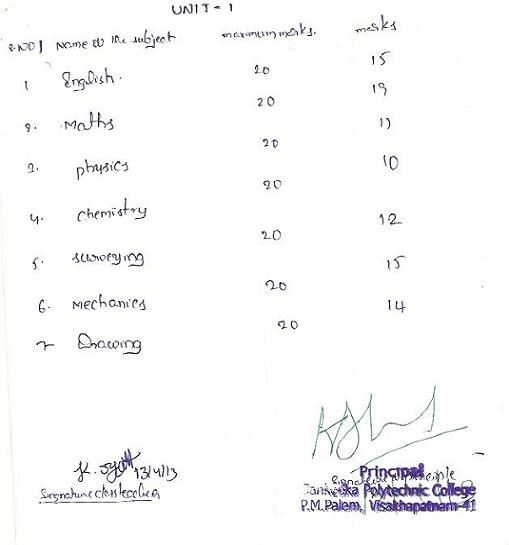 UNIT - 1
S.NO Name of the subject maximum marks. marks
1 English. 20 15
2. Maths 20 19
3. physics 20 11
4. chemistry 20 10
5. surveying 20 12
6. Mechanics 20 15
7 Drawing 20 14
13/4/13
Signature class teacher
Principal
Polytechnic College
P.M.Palem, Visakhapatnam-41